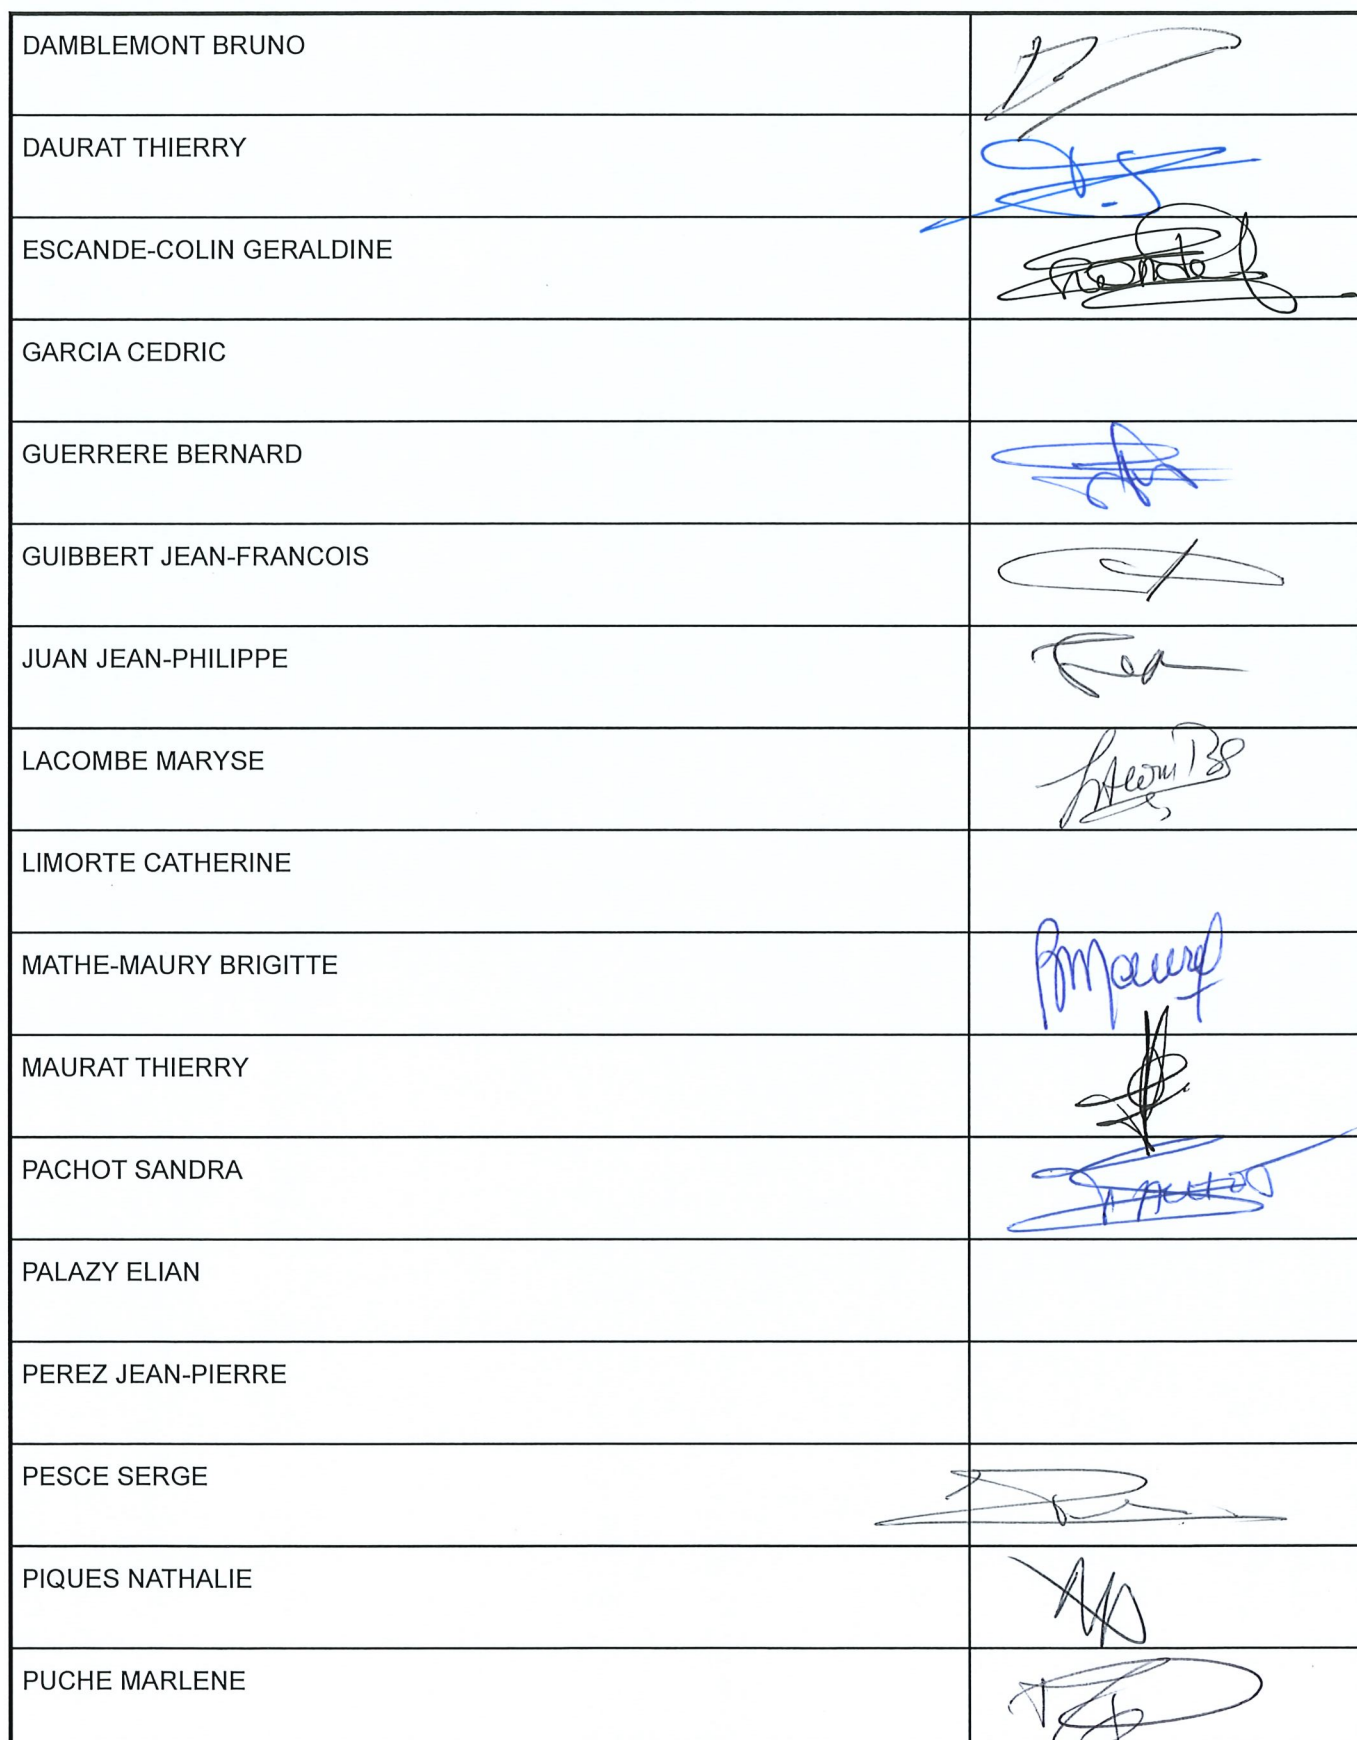 DAMBLEMONT BRUNO
DAURAT THIERRY
ESCANDE-COLIN GERALDINE
GARCIA CEDRIC
GUERRERE BERNARD
GUIBBERT JEAN-FRANCOIS
JUAN JEAN-PHILIPPE
LACOMBE MARYSE
LIMORTE CATHERINE
MATHE-MAURY BRIGITTE
MAURAT THIERRY
PACHOT SANDRA
PALAZY ELIAN
PEREZ JEAN-PIERRE
PESCE SERGE
PIQUES NATHALIE
PUCHE MARLENE